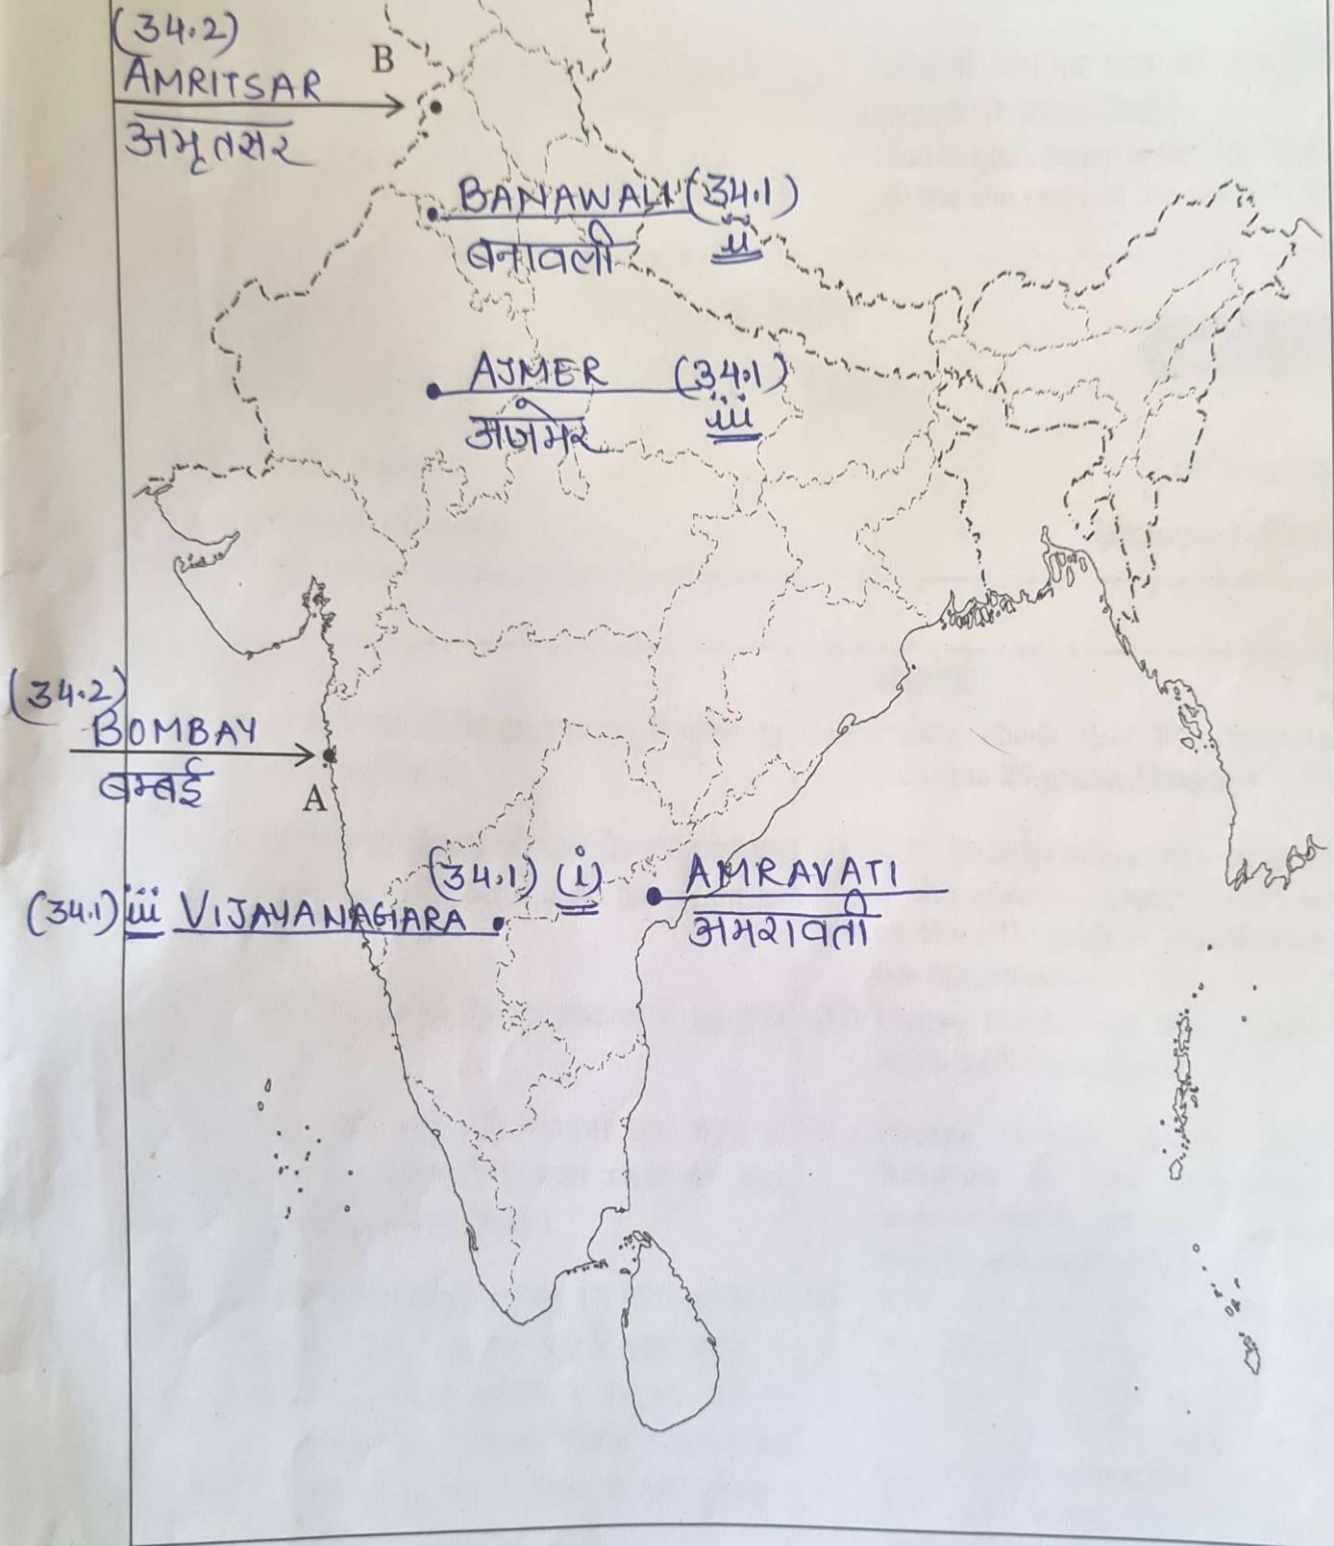 (34.2)
B
AMRITSAR
अमृतसर
BANAWALI (34.1)
बनावली ii
AJMER (34.1)
अजमेर iii
(34.2)
BOMBAY
बम्बई
A
(34.1) (i) AMRAVATI
अमरावती
(34.1) iii VIJAYANAGARA